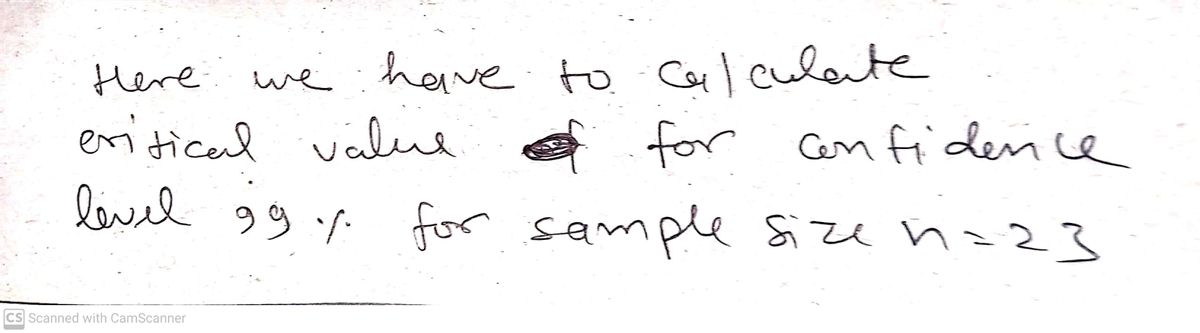 Here we have to calculate
critical value for confidence
level 99 % for sample size n = 23
CS Scanned with CamScanner